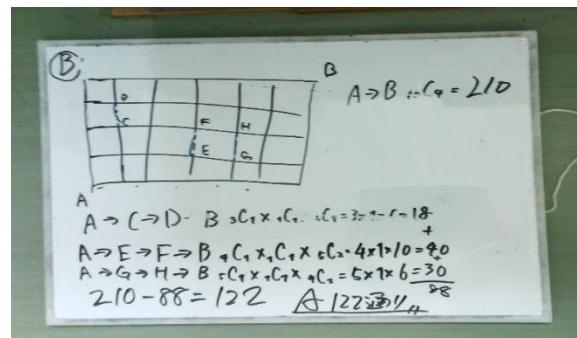 Ⓑ
B
A→B ₁₀C₄=210
D
C
F
H
E
G
A
A→C→D- B ₃C₁×₁C₁
=18
+
A→E→F→B ₄C₁×₁C₁×₅C₂=4×1×10=40
+
A→G→H→B ₅C₁×₁C₁×₄C₂=5×1×6=30
88
210-88=122 A 122通り〃